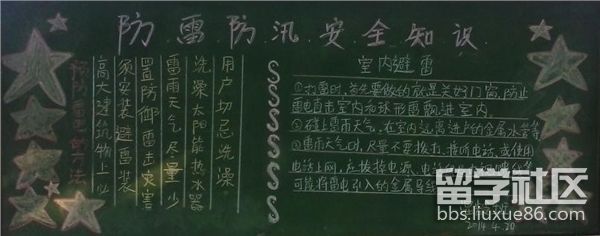 防雷防汛安全知识
预防雷电的方法
高大建筑物上必
须安装避雷装
置防御雷击灾害
雷雨天气尽量少
洗澡太阳能热水器
用户切忌洗澡
室内避雷
①打雷时,首先要做的就是关好门窗,防止
雷电直击室内和球形雷飘进室内
②碰上雷雨天气,在室内远离进户的金属水管等
③雷雨天气时,尽量不要拨打、接听电话,或使用
电话上网,应拔掉电源、电话
可能将雷电引入的金属导线
2014.4.20
留学社区
bbs.liuxue86.com